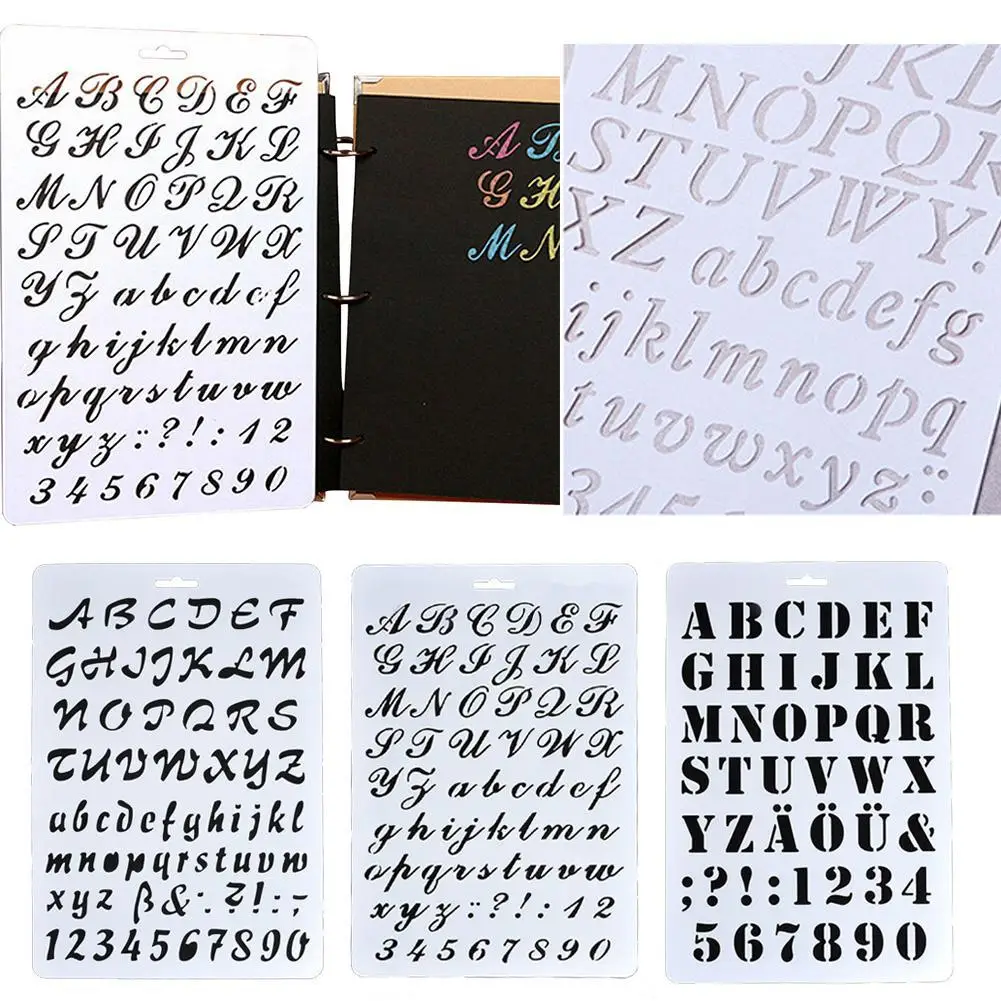 A B C D E F
G H I J K L
M N O P Q R
S T U V W X
Y Z a b c d e f
g h i j k l m n
o p q r s t u v w
x y z ¨ : ? ! : 1 2
3 4 5 6 7 8 9 0
A B
G H
M N
J K L
M N O P Q R
S T U V W Y !
X Z a b c d e f g
i j k l m n o p q
t u v w x y z ¨ :
3 4 5
A B C D E F
G H I J K L M
N O P Q R S
T U V W X Y Z
a b c d e f g h i j k l
m n o p q r s t u v w
x y z ß & : ? ! : -
1 2 3 4 5 6 7 8 9 0
A B C D E F
G H I J K L
M N O P Q R
S T U V W X
Y Z a b c d e f
g h i j k l m n
o p q r s t u v w
x y z ¨ : ? ! : 1 2
3 4 5 6 7 8 9 0
A B C D E F
G H I J K L
M N O P Q R
S T U V W X
Y Z Ä Ö Ü &
; ? ! : 1 2 3 4
5 6 7 8 9 0